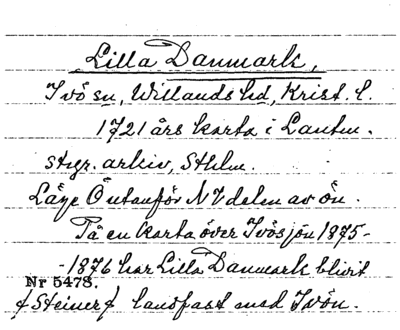 Lilla Danmark,
Ivö sn, Willands hd, Krist. l.
1721 års karta i Lantm.
styr. arkiv, Sthlm.
Läge Ö utanför NV delen av ön.
På en karta över Ivösjön 1875-
-1876 har Lilla Danmark blivit
Nr 5478.
/Steiner/ landfast med Ivön.